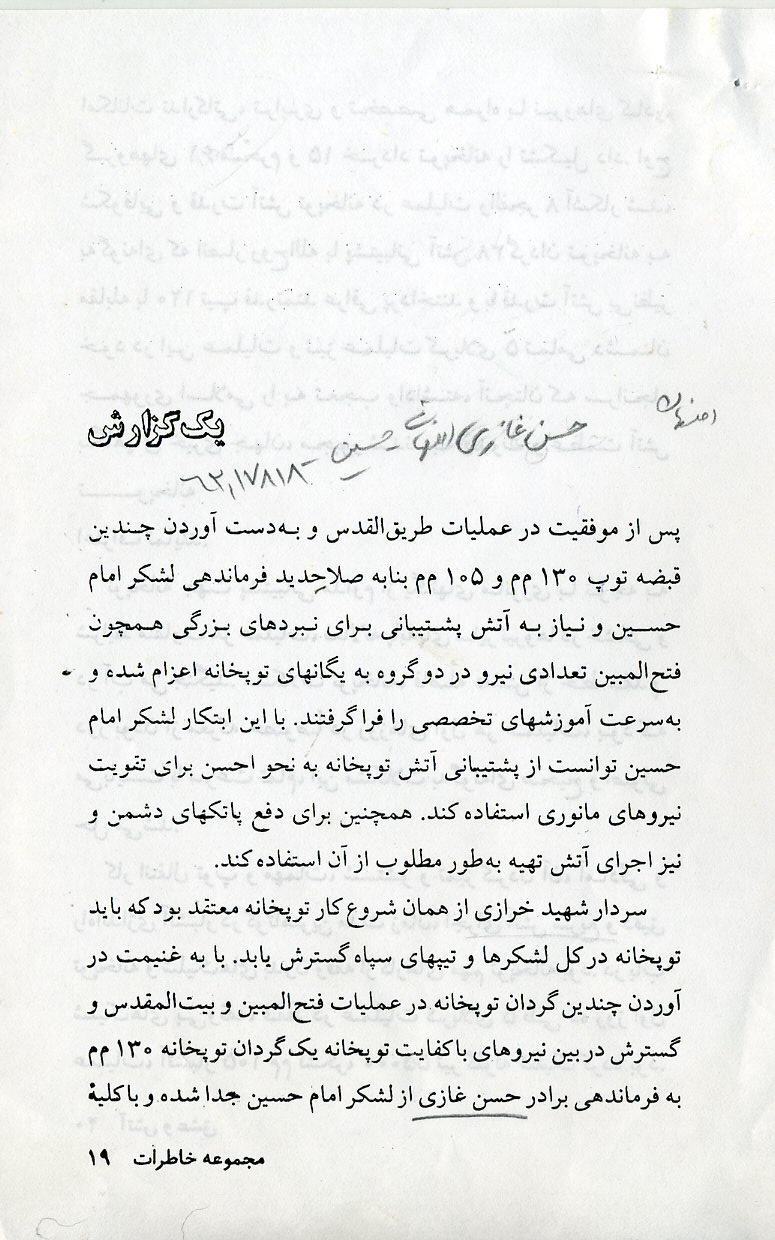 اصفهان
یک گزارش
حسن غازی حسین
۶۲,۱۷۸۱۸
پس از موفقیت در عملیات طریق‌القدس و به‌دست آوردن چندین
قبضه توپ ۱۳۰ مم و ۱۰۵ مم بنابه صلاحدید فرماندهی لشکر امام
حسین و نیاز به آتش پشتیبانی برای نبردهای بزرگی همچون
فتح‌المبین تعدادی نیرو در دو گروه به یگانهای توپخانه اعزام شده و
به‌سرعت آموزشهای تخصصی را فرا گرفتند. با این ابتکار لشکر امام
حسین توانست از پشتیبانی آتش توپخانه به نحو احسن برای تقویت
نیروهای مانوری استفاده کند. همچنین برای دفع پاتکهای دشمن و
نیز اجرای آتش تهیه به‌طور مطلوب از آن استفاده کند.
سردار شهید خرازی از همان شروع کار توپخانه معتقد بود که باید
توپخانه در کل لشکرها و تیپهای سپاه گسترش یابد. با به غنیمت در
آوردن چندین گردان توپخانه در عملیات فتح‌المبین و بیت‌المقدس و
گسترش در بین نیروهای با کفایت توپخانه یک گردان توپخانه ۱۳۰ مم
به فرماندهی برادر حسن غازی از لشکر امام حسین جدا شده و با کلیهٔ
مجموعه خاطرات ۱۹